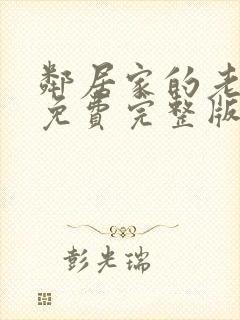 鄰居家的老
免費完整版
彭光瑞